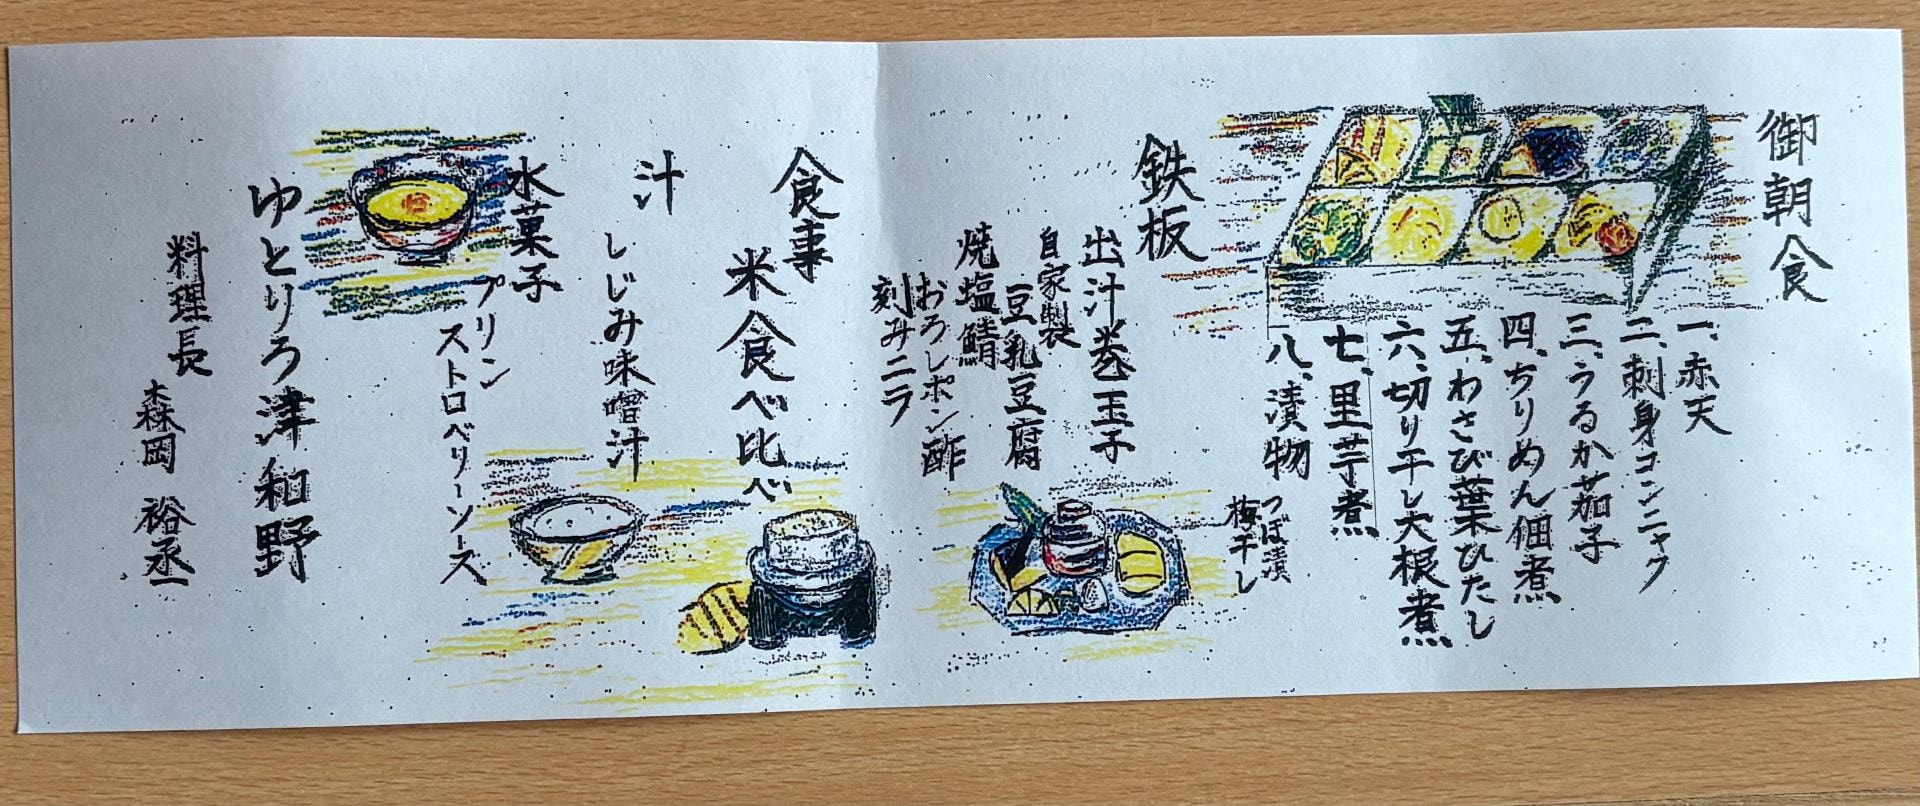 御朝食
一、赤天
二、刺身コンニャク
三、うるか茄子
四、ちりめん佃煮
五、わさび葉ひたし
六、切り干し大根煮
七、里芋煮
八、漬物
つぼ漬
梅干し
鉄板
出汁巻玉子
自家製
豆乳豆腐
焼塩鯖
おろしポン酢
刻みニラ
食事
米食べ比べ
汁
しじみ味噌汁
水菓子
プリン
ストロベリーソース
ゆとりろ津和野
料理長
森岡 裕丞